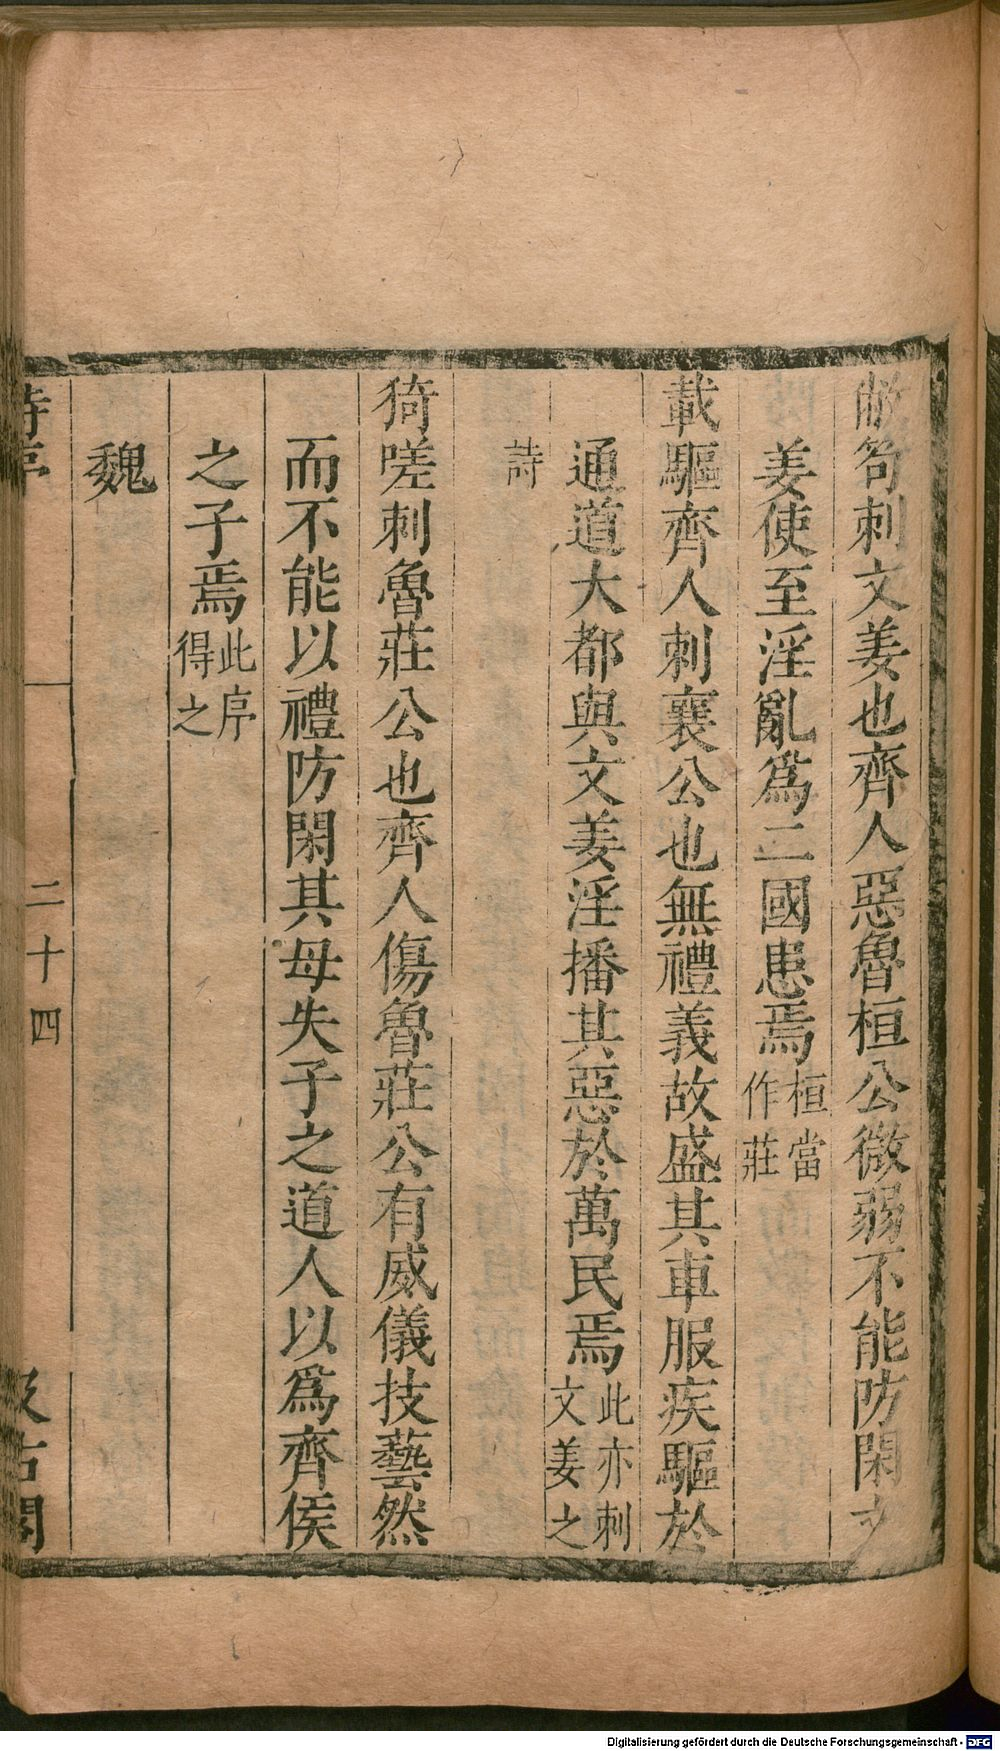 敝笱刺文姜也齊人惡魯桓公微弱不能防閑文
姜使至淫亂爲二國患焉桓當作莊
載驅齊人刺襄公也無禮義故盛其車服疾驅於
通道大都與文姜淫播其惡於萬民焉此亦刺文姜之
詩
猗嗟刺魯莊公也齊人傷魯莊公有威儀技藝然
而不能以禮防閑其母失子之道人以爲齊侯
之子焉此序得之
魏
詩序 二十四 汲古閣
Digitalisierung gefördert durch die Deutsche Forschungsgemeinschaft - DFG